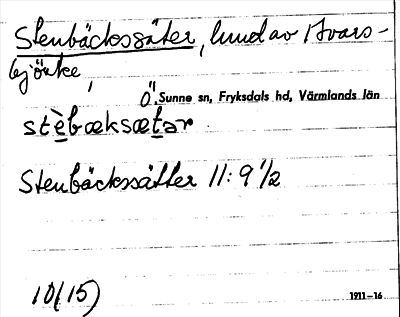 Stenbäckssäter, lund av Hvars-
björke,
Ö. Sunne sn, Fryksdals hd, Värmlands län
stὲbæksætər
Stenbäckssätter 11: 9 1/2
10(15)
1911-16